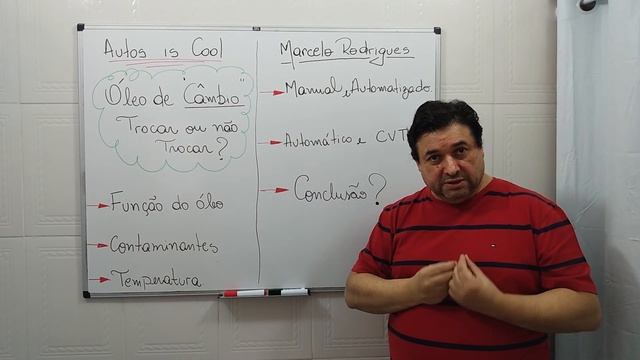 Autos is Cool
Óleo de "Câmbio"
Trocar ou não
Trocar?
Função do óleo
Contaminantes
Temperatura
Marcelo Rodrigues
Manual e Automatizado
Automático e CVT
Conclusão?